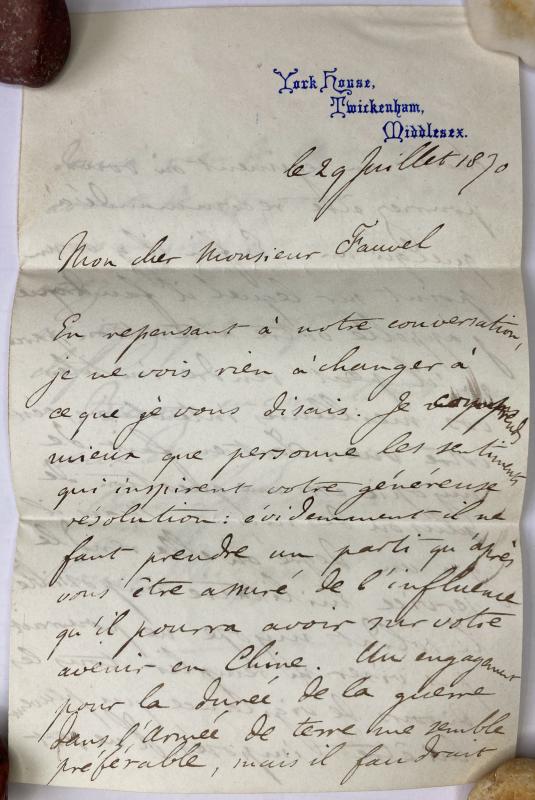 York House,
Twickenham,
Middlesex.
le 29 Juillet 1870
Mon cher Monsieur Fauvel
En repensant à notre conversation,
je ne vois rien à changer à
ce que je vous disais. Je comprends
mieux que personne les sentiments
qui inspirent votre généreuse
résolution : évidemment il ne
faut prendre un parti qu'après
vous être assuré de l'influence
qu'il pourra avoir sur votre
avenir en Chine. Un engagement
pour la durée de la guerre
dans l'Armée de terre me semble
préférable, mais il faudrait